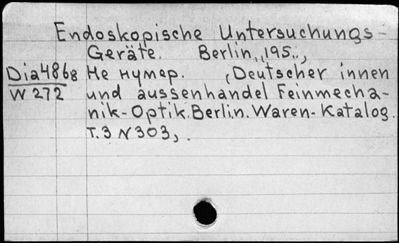 Endoskopische Untersuchungs-
Geräte. Berlin,,195.,,
Dia4868 Не нумер. (Deutscher innen
W272 und äussenhandel Feinmecha-
nik-Optik. Berlin. Waren-Katalog.
T.3 N303, .